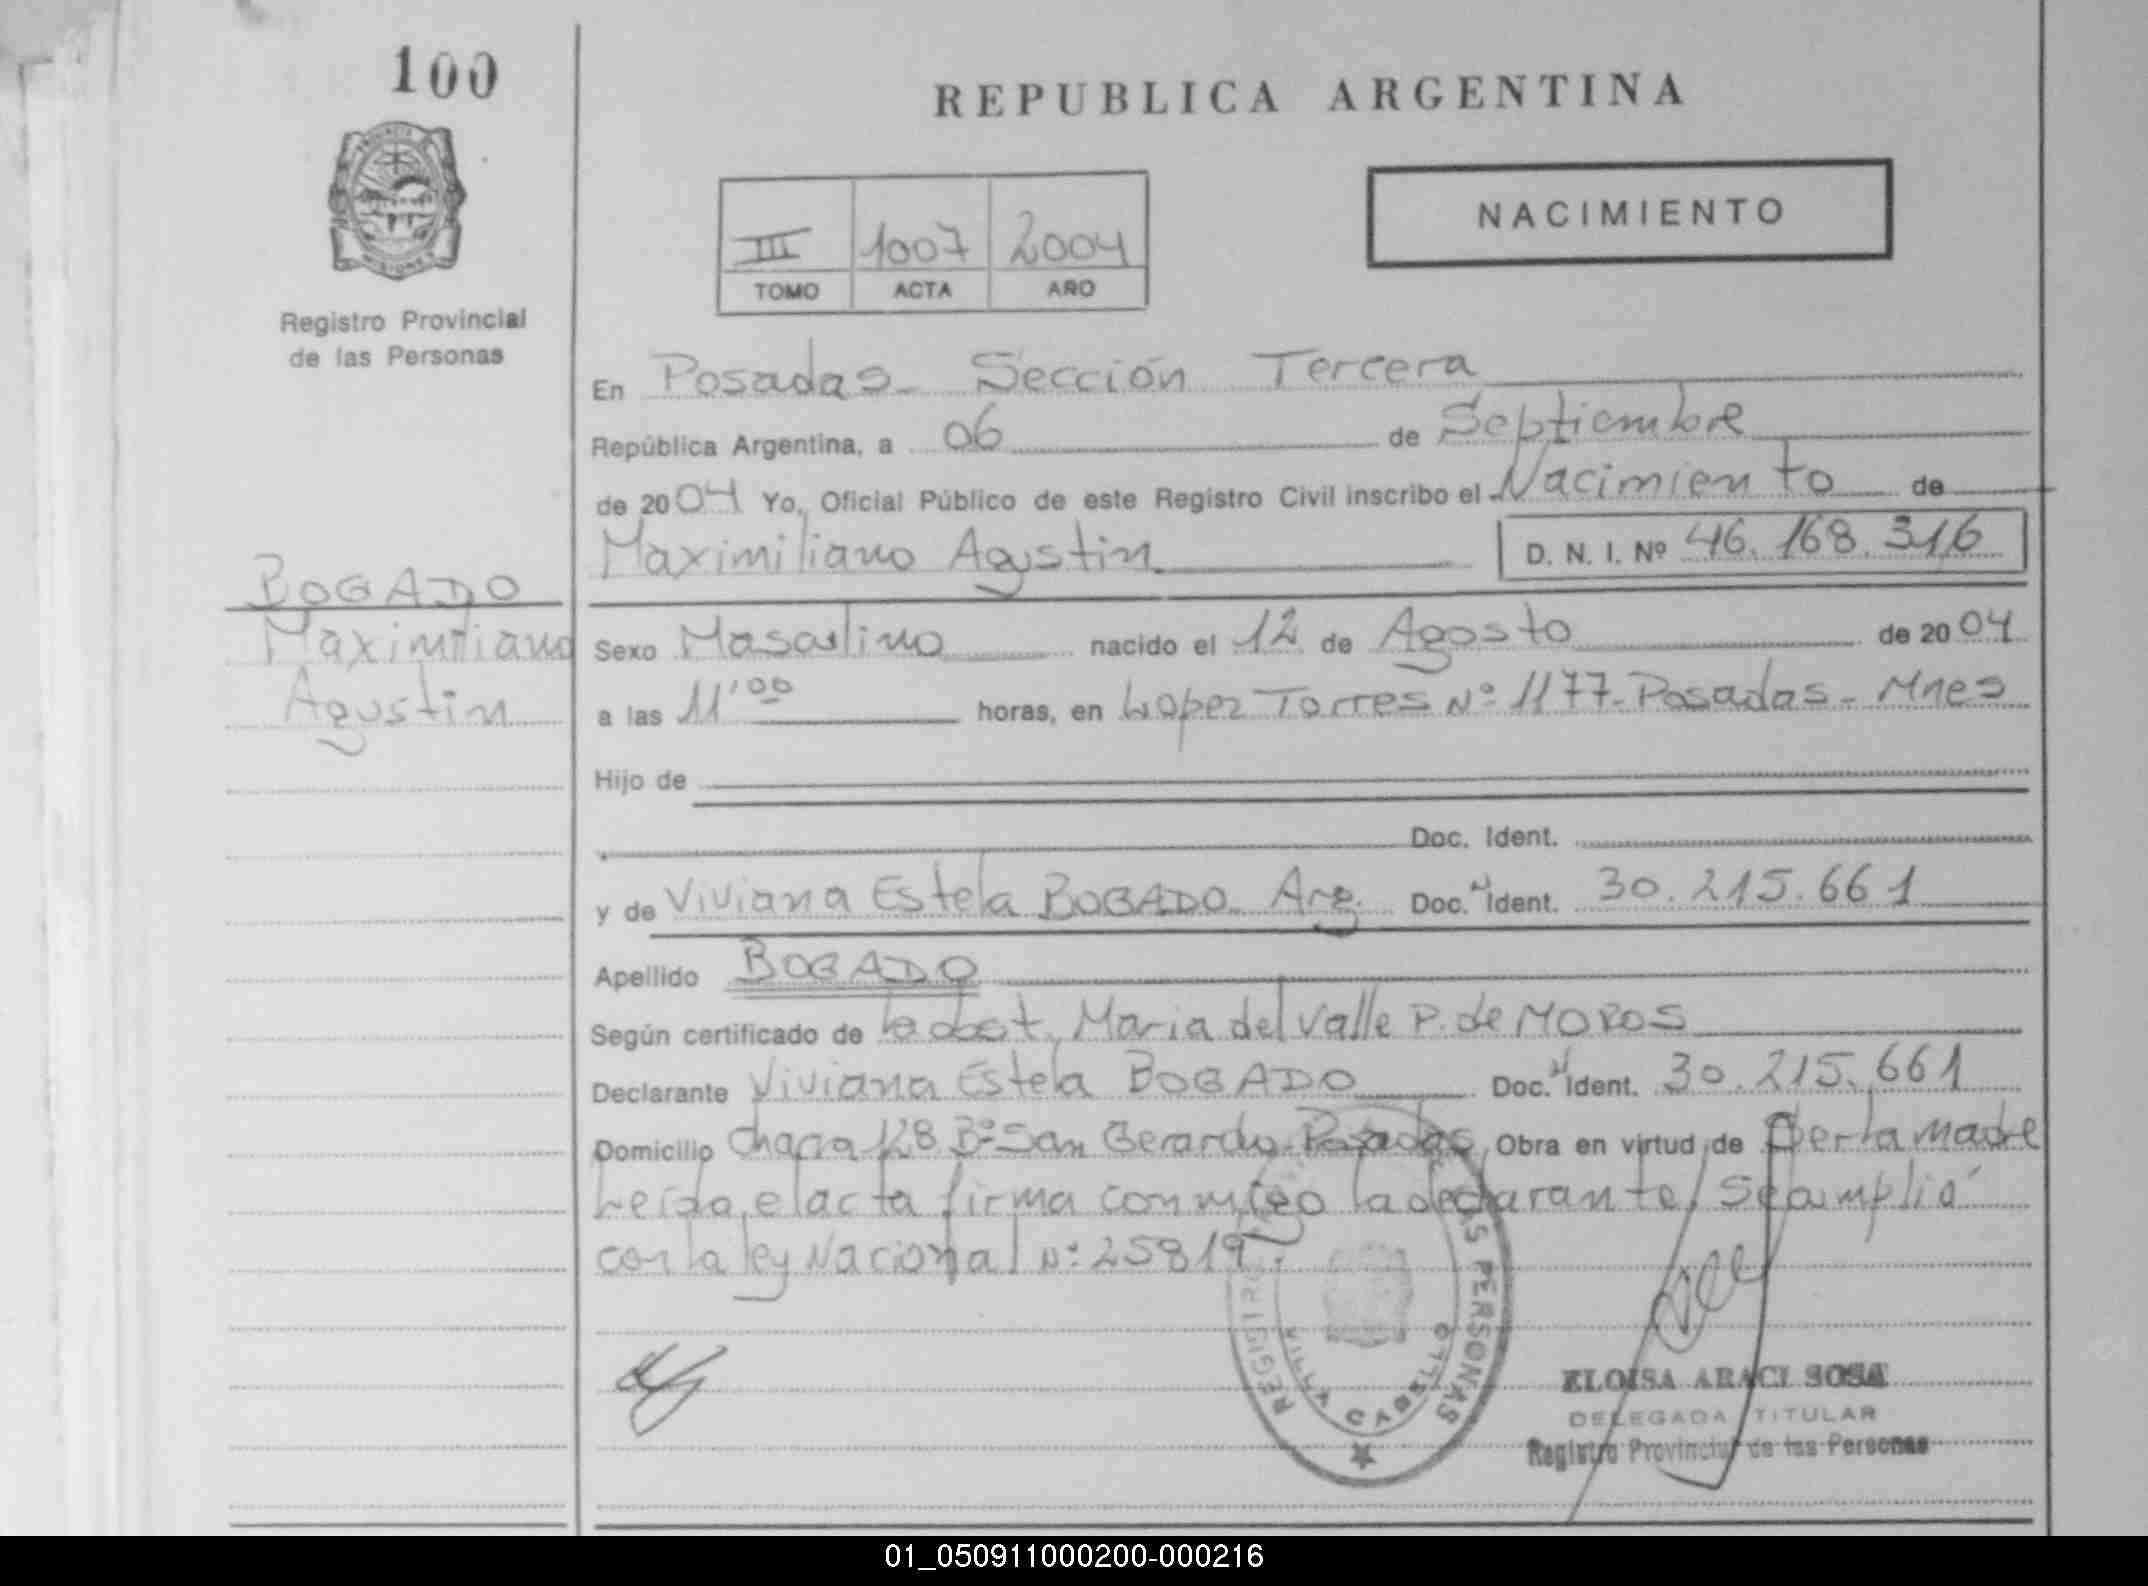 100
REPUBLICA ARGENTINA
PROVINCIA
MISIONES
NACIMIENTO
III 1007 2004
TOMO ACTA AÑO
Registro Provincial
de las Personas
En Posadas - Sección Tercera
República Argentina, a 06 de Septiembre
de 2004 Yo, Oficial Público de este Registro Civil inscribo el Nacimiento de
Maximiliano Agustin D. N. I. Nº 46.168.316
BOGADO
Maximiliano
Agustin
Sexo Masculino nacido el 12 de Agosto de 2004
a las 11'00 horas, en Lopez Torres Nº 1177 - Posadas - Mnes
Hijo de
Doc. Ident.
y de Viviana Estela BOGADO Arg. Doc. N Ident. 30.215.661
Apellido BOGADO
Según certificado de la obst. Maria del Valle P. de MOROS
Declarante Viviana Estela BOGADO Doc. N Ident. 30.215.661
Domicilio Chacra 128 Bº San Gerardo - Posadas Obra en virtud de Ser la madre
Leída el acta firma conmigo la declarante, Se cumplió
con la ley Nacional Nº 25819.
REGISTRO PERSONAS
VILLA CABELLO
ELOISA ARACI SOSA
DELEGADA TITULAR
Registro Provincial de las Personas
01_050911000200-000216